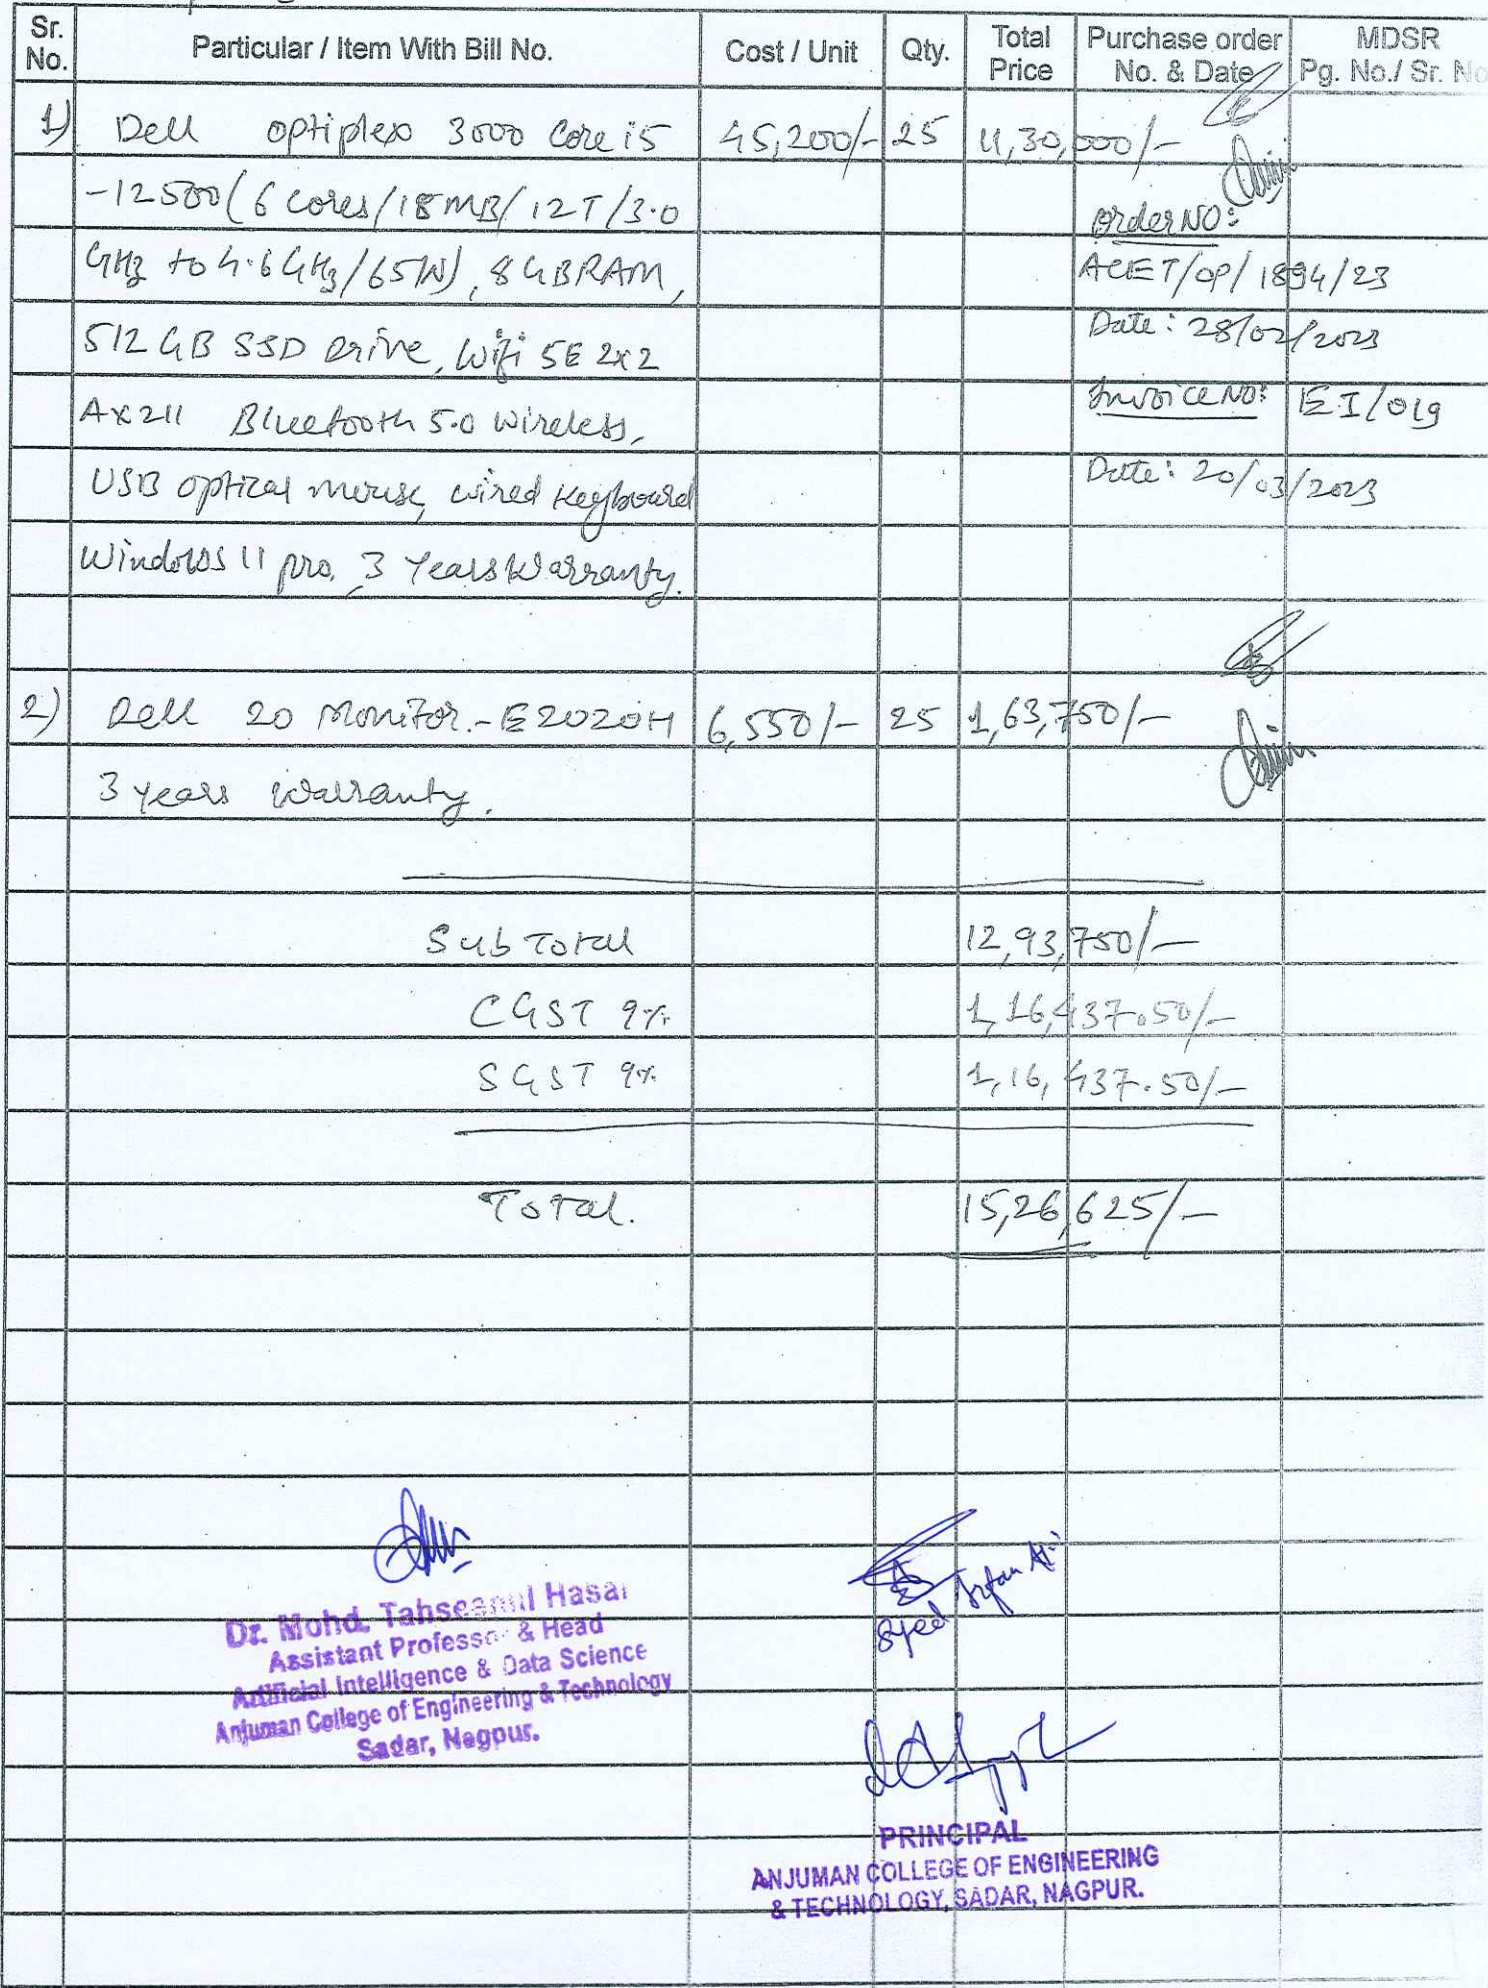 Sr. No. Particular / Item With Bill No. Cost / Unit Qty. Total Price Purchase order No. & Date MDSR Pg. No./ Sr. No
1) Dell optiplex 3000 Core i5 45,200/- 25 11,30,000/-
-12500 (6 cores/18MB/12T/3.0
Order NO:
GHz to 4.6 GHz/65W), 8GB RAM,
ACET/OP/1894/23
512 GB SSD Drive, Wifi 5E 2x2
Date: 28/02/2023
AX211 Bluetooth 5.0 wireless,
Invoice NO: EI/019
USB optical mouse, wired Keyboard
Date: 20/03/2023
Windows 11 pro, 3 Years Warranty.
2) Dell 20 Monitor.-E2020H 6,550/- 25 1,63,750/-
3 years warranty.
Sub Total 12,93,750/-
CGST 9% 1,16,437.50/-
SGST 9% 1,16,437.50/-
Total. 15,26,625/-
Syed Irfan Ali
Dr. Mohd. Tahseenul Hasan
Assistant Professor & Head
Artificial Intelligence & Data Science
Anjuman College of Engineering & Technology
Sadar, Nagpur.
PRINCIPAL
ANJUMAN COLLEGE OF ENGINEERING
& TECHNOLOGY, SADAR, NAGPUR.